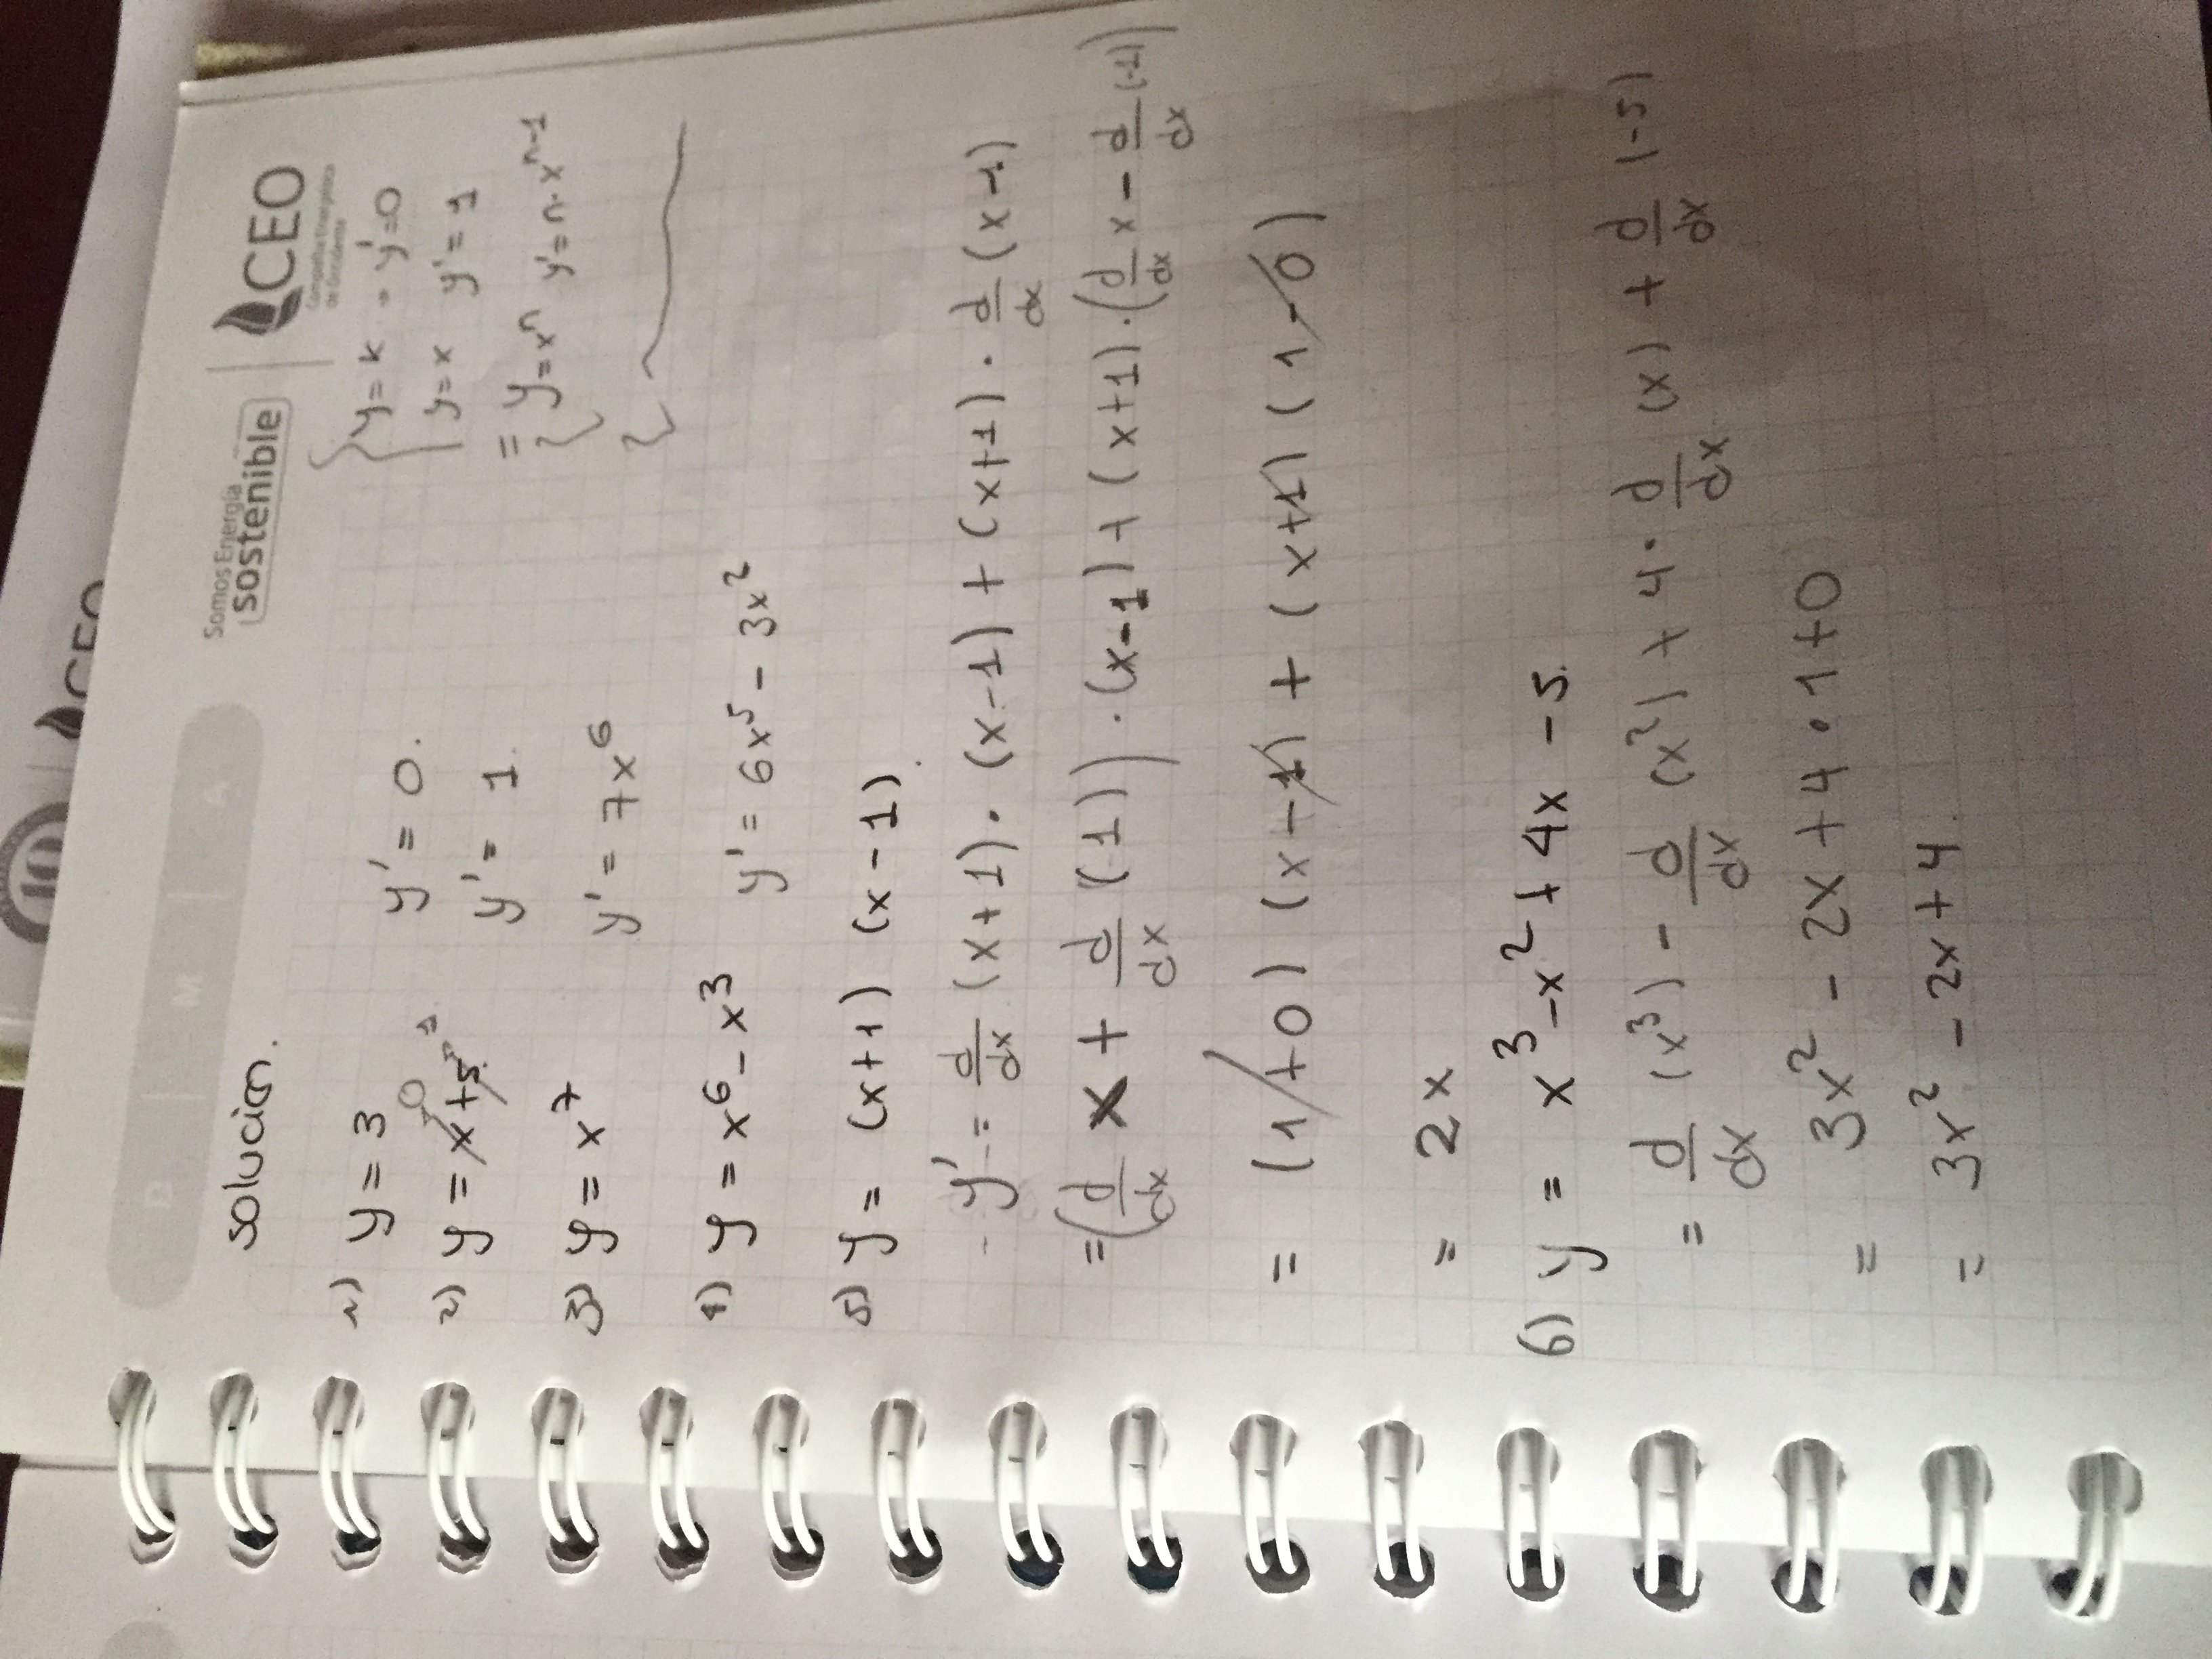 10 | CEO
D | M | A
Somos Energía
sostenible
CEO
Compañía Energética
de Occidente
solucion.
1) y = 3 y' = 0.
2) y = x+5 y' = 1.
3) y = x^7 y' = 7x^6
4) y = x^6 - x^3 y' = 6x^5 - 3x^2
5) y = (x+1) (x-1).
- y' = d/dx (x+1) · (x-1) + (x+1) · d/dx (x-1)
= (d/dx x + d/dx (1)) · (x-1) + (x+1) · (d/dx x - d/dx (-1))
= (1+0) (x-1) + (x+1) (1-0)
= 2x
6) y = x^3 - x^2 + 4x - 5.
= d/dx (x^3) - d/dx (x^2) + 4 · d/dx (x) + d/dx (-5)
= 3x^2 - 2x + 4 · 1 + 0
= 3x^2 - 2x + 4.
y = k - y' = 0
y = x y' = 1
= y = x^n y' = n · x^n-1